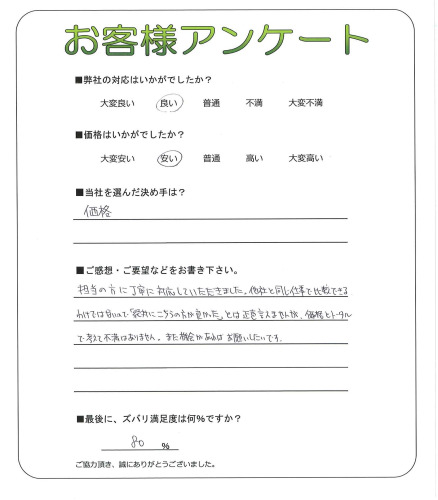 お客様アンケート
■弊社の対応はいかがでしたか？
大変良い 良い 普通 不満 大変不満
■価格はいかがでしたか？
大変安い 安い 普通 高い 大変高い
■当社を選んだ決め手は？
価格
■ご感想・ご要望などをお書き下さい。
担当の方に丁寧に対応していただきました。他社と同じ仕事で比較できる
わけでは無いので「絶対にこちらの方が良かった」とは正直言えませんが、価格とトータル
で考えて不満はありません。また機会があればお願いしたいです。
■最後に、ズバリ満足度は何％ですか？
80 ％
ご協力頂き、誠にありがとうございました。